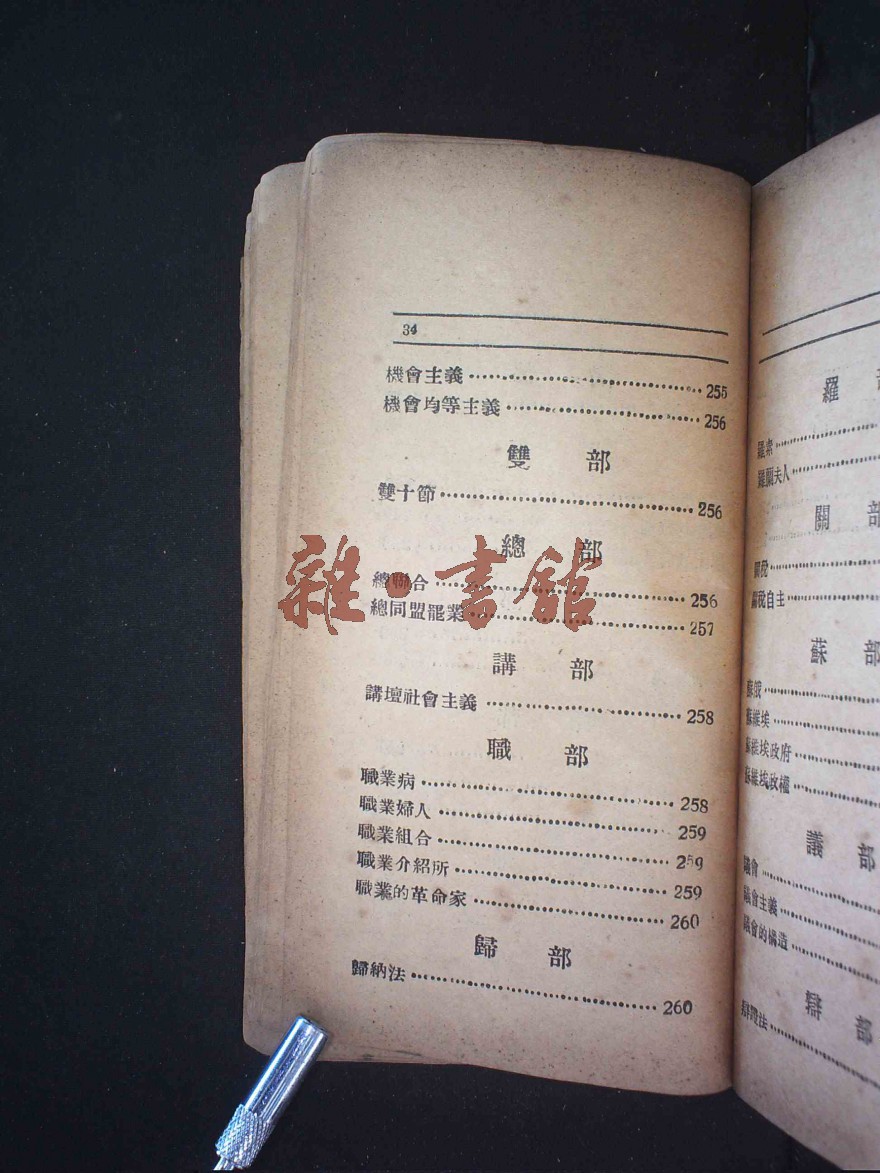 34
機會主義 255
機會均等主義 256
雙 部
雙十節 256
總 部
總聯合 256
總同盟罷業 257
講 部
講壇社會主義 258
職 部
職業病 258
職業婦人 259
職業組合 259
職業介紹所 259
職業的革命家 260
歸 部
歸納法 260
雜·書館
羅 部
羅素
羅蘭夫人
關 部
關稅
關稅自主
蘇 部
蘇俄
蘇維埃
蘇維埃政府
蘇維埃政權
議 部
議會
議會主義
議會的構造
辯 部
辯證法